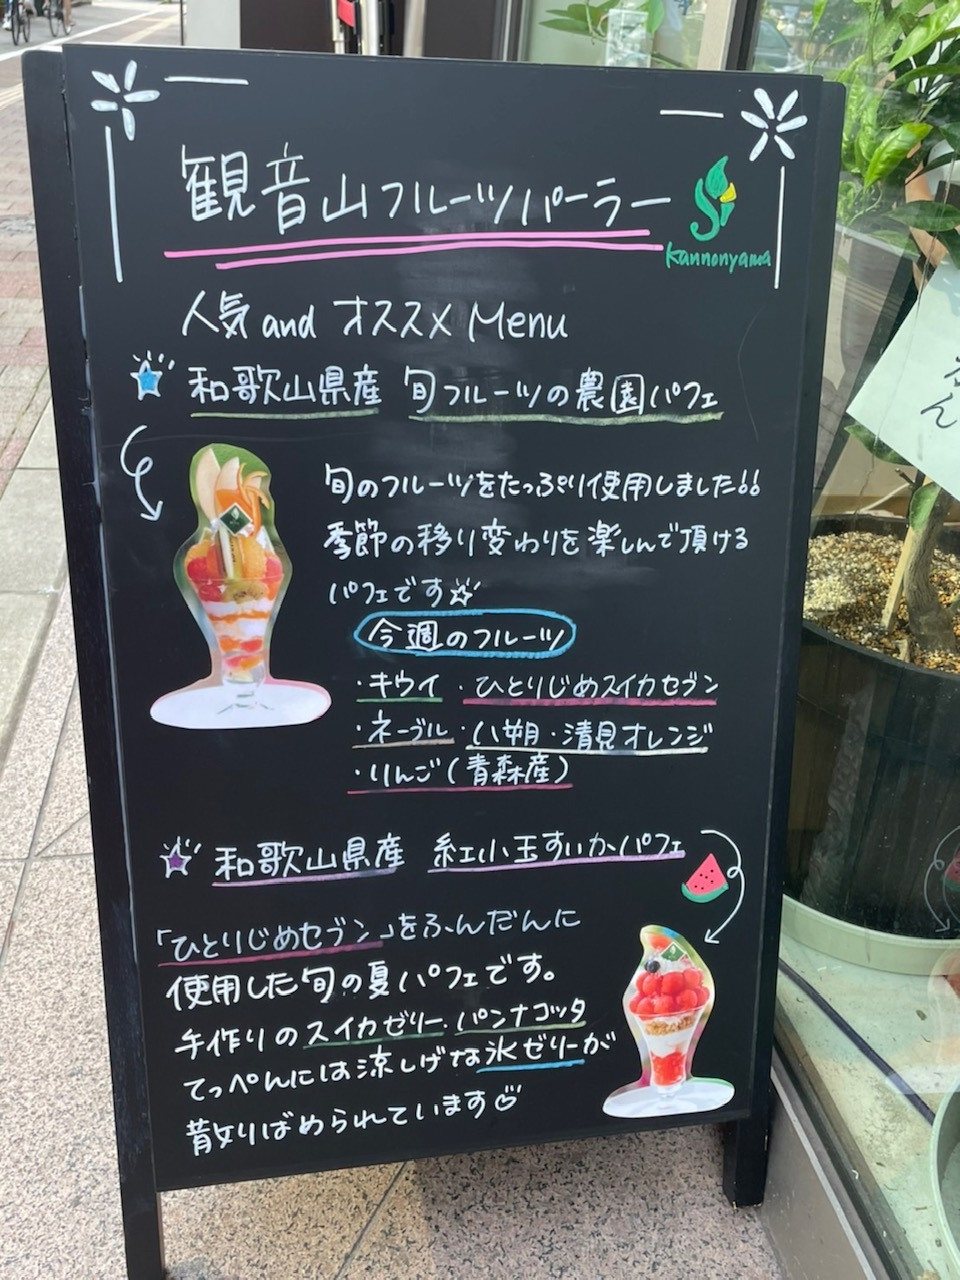 観音山フルーツパーラー
Kannonyama
人気 and オススメ Menu
和歌山県産 旬フルーツの農園パフェ
旬のフルーツをたっぷり使用しました!!
季節の移り変わりを楽しんで頂ける
パフェです☆
今週のフルーツ
・キウイ ・ひとりじめスイカセブン
・ネーブル ・八朔・清見オレンジ
・りんご(青森産)
和歌山県産 紅小玉すいかパフェ
「ひとりじめセブン」をふんだんに
使用した旬の夏パフェです。
手作りのスイカゼリー・パンナコッタ
てっぺんには涼しげな氷ゼリーが
散りばめられています